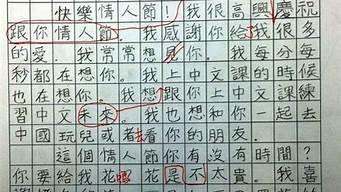 快樂情人節!我很高興慶祝
跟你情人節。我感謝你給我很多
的愛。我常常想你。我每分每
秒都在想你。我上中文課的時候
也在想你。我想跟你上中文課練
習中文未來。我也想和你一起去
中國玩兒或者看你的朋友。
這個情人節你有沒有時間?
你要給我花嗎 花是不太貴。我喜